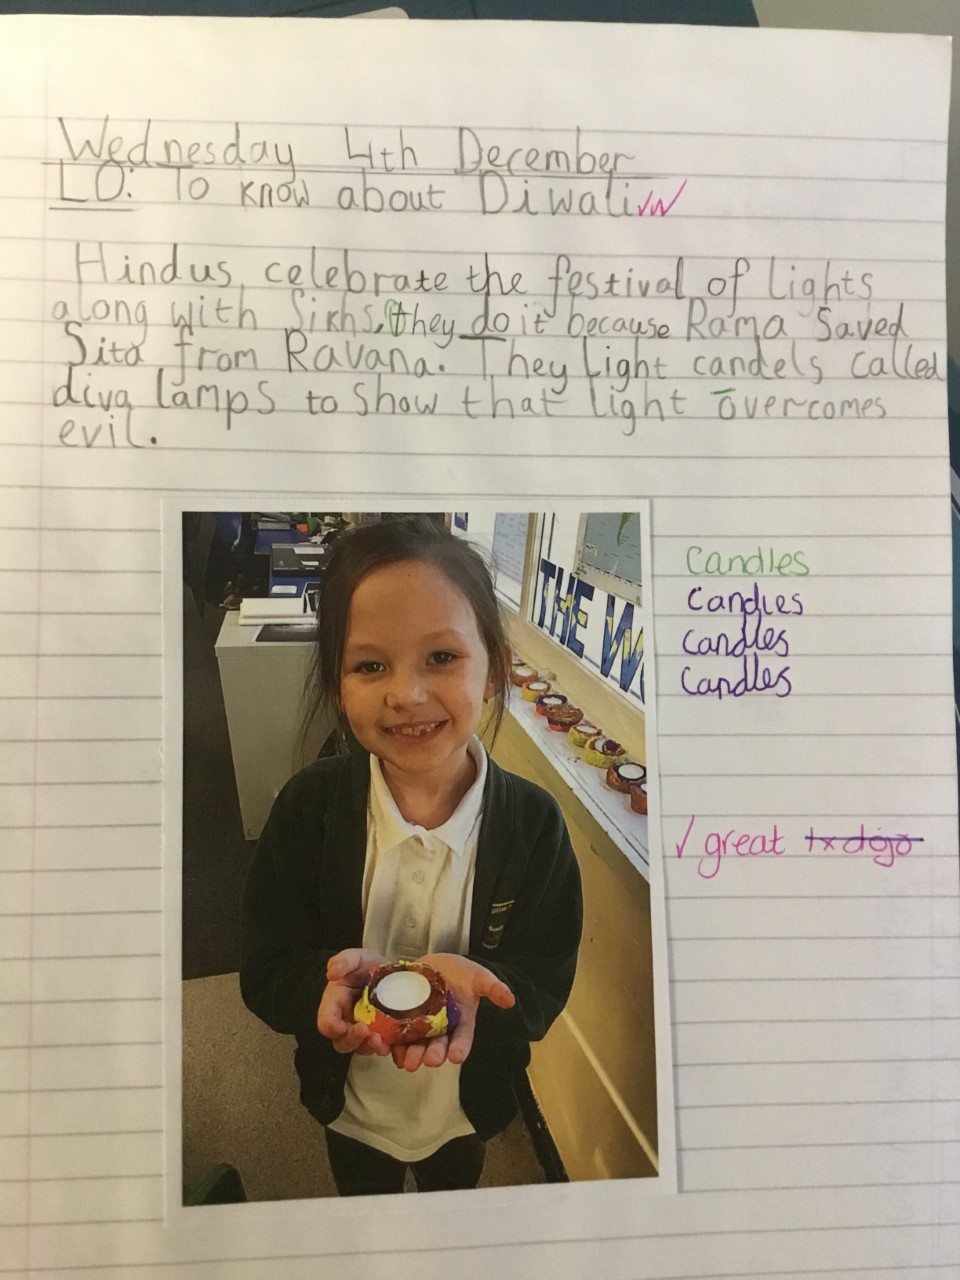 Wednesday 4th December
LO: To know about Diwali
Hindus celebrate the festival of lights
along with Sikhs, they do it because Rama Saved
Sita from Ravana. They Light candels called
diva lamps to show that light overcomes
evil.
THE W
Candles
Candles
Candles
Candles
great 1x dojo